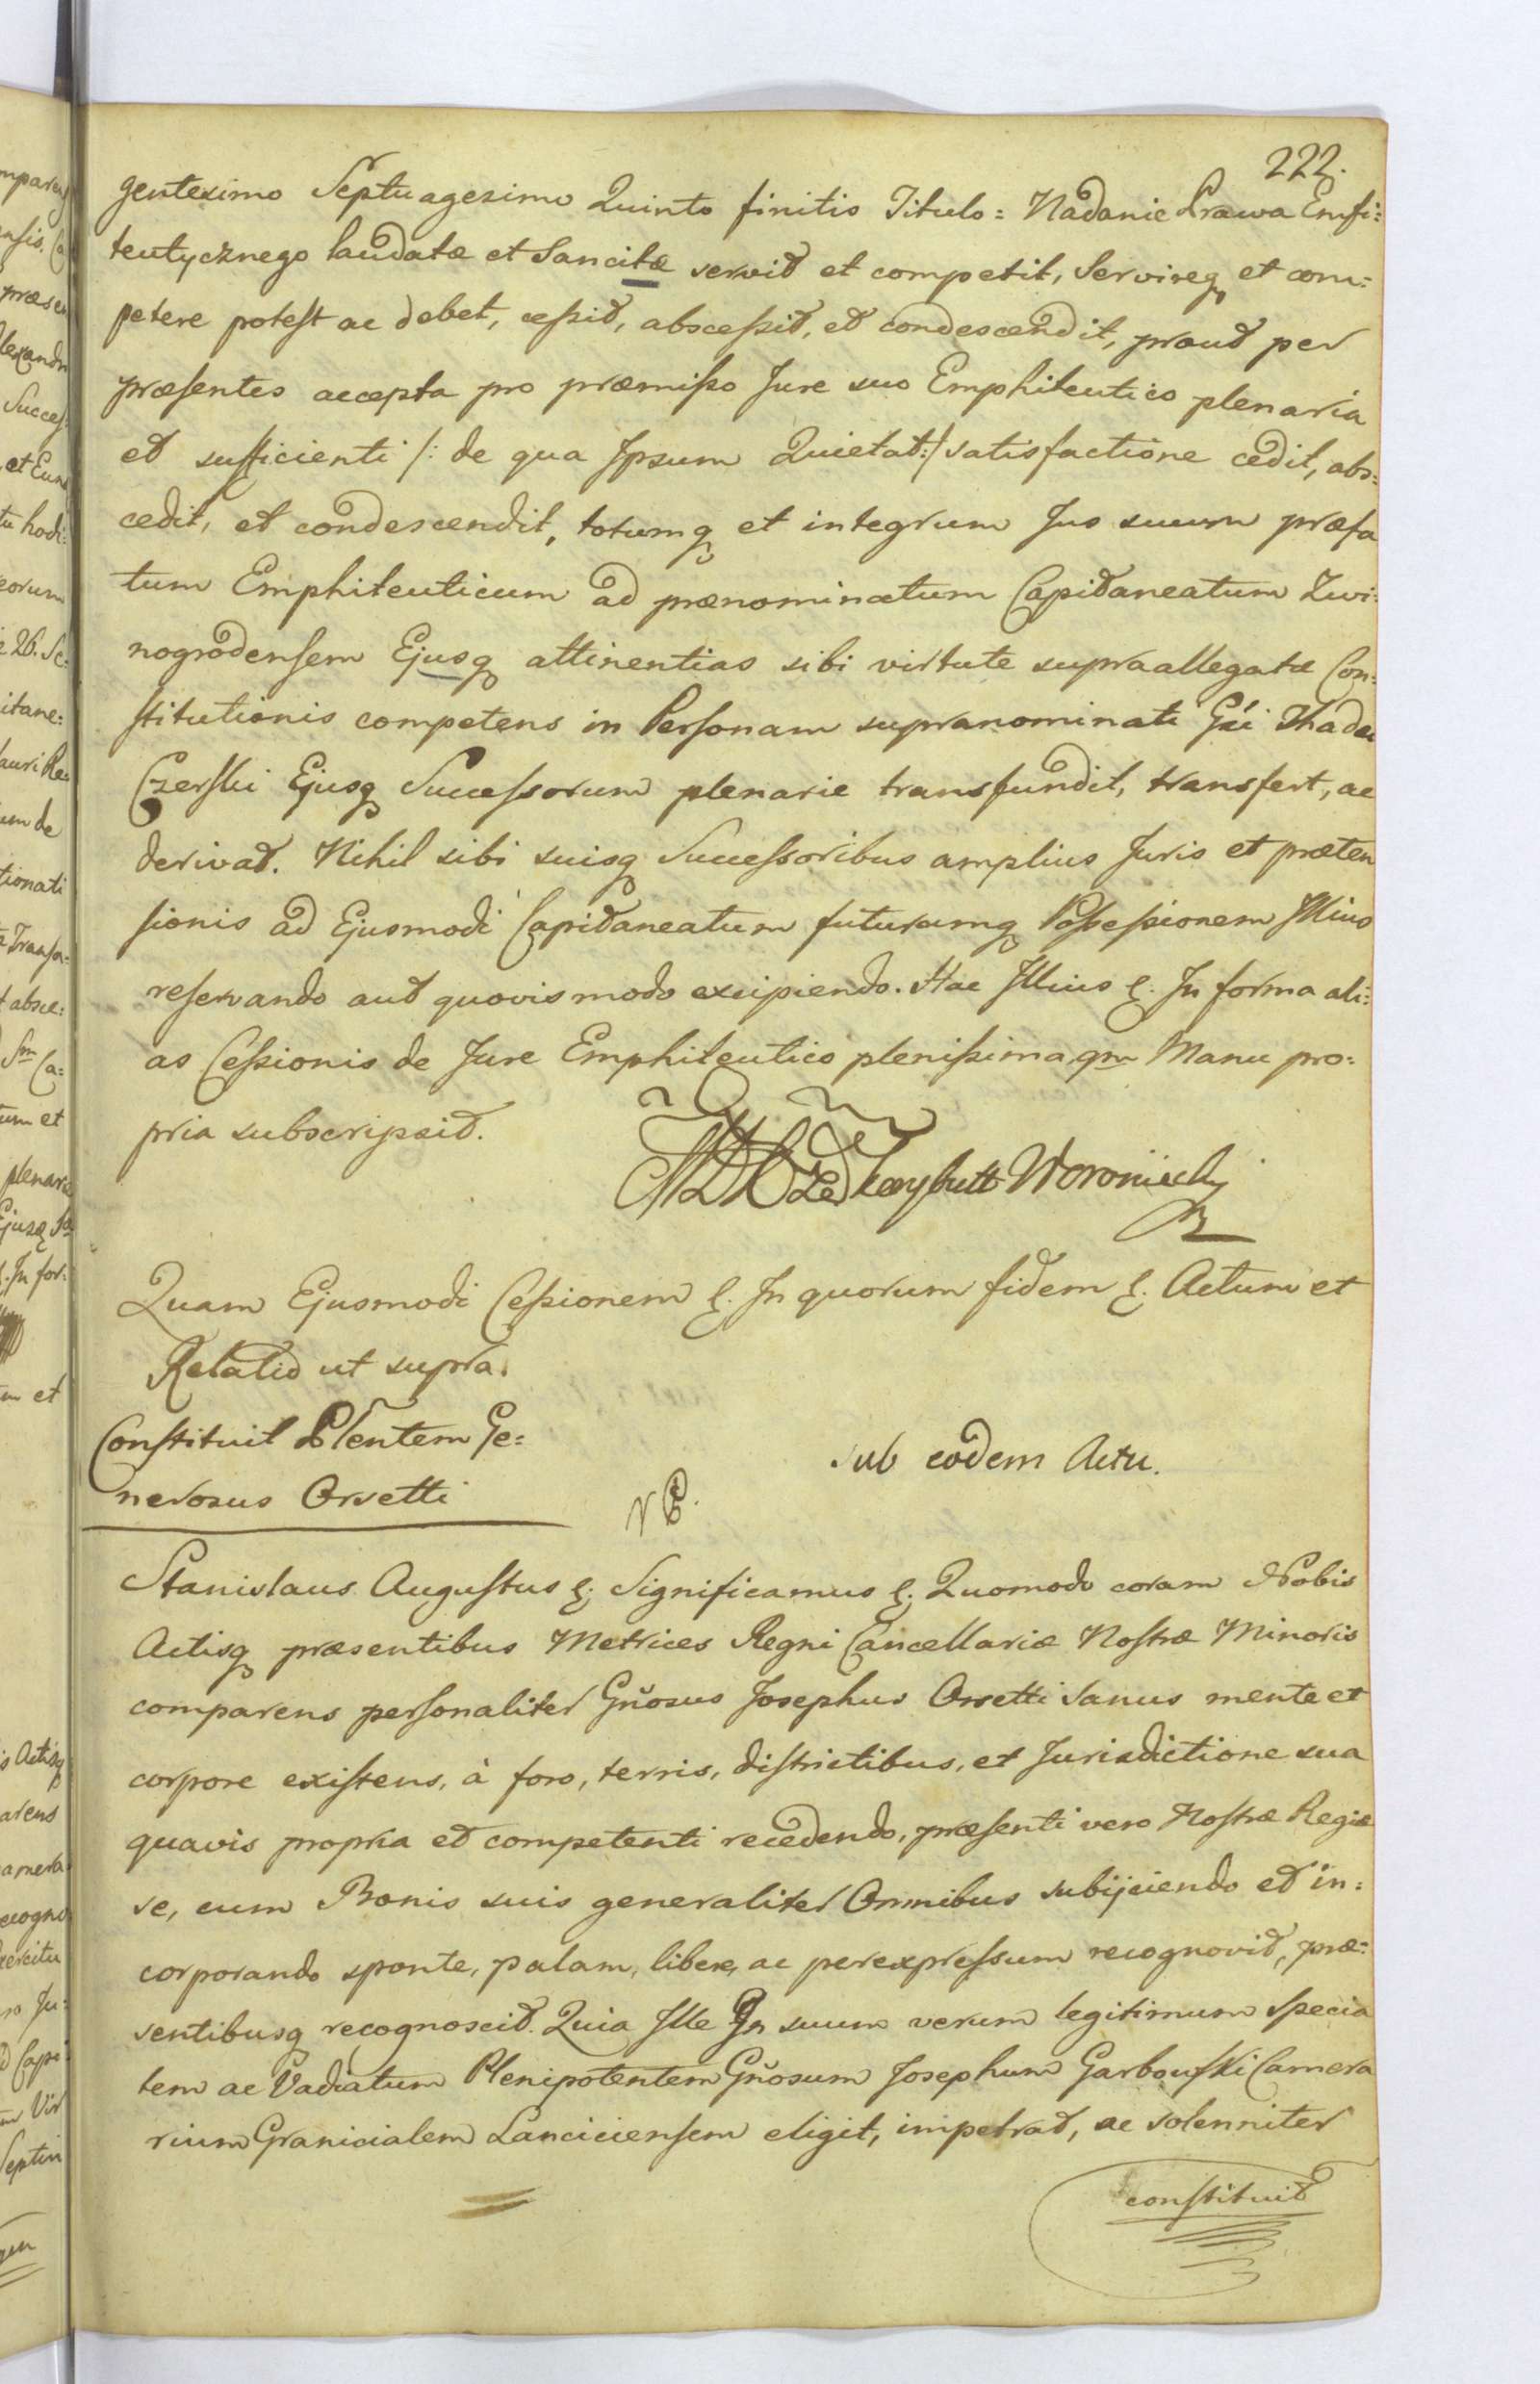 222.
gentesimo Septuagesimo Quinto finitis Titulo: Nadanie Prawa Emfi:
teutycznego laudatæ et Sancitæ servit et competit, Servireq et com:
petere potest ac debet, cessit, abscessit, et condescendit, prout per
præsentes accepta pro præmisso Jure suo Emphiteutico plenaria
et sufficienti /: de qua Ipsum Quietat :/ satisfactione cedit, abs:
cedit, et condescendit, totumq et integrum Jus suum præfa
tum Emphiteuticum ad prænominatum Capitaneatum Zwi:
nogrodensem Ejusq attinentias sibi virtute supraallegatæ Con:
stitutionis competens in Personam supranominati Gsi Thadæi
Czerski Ejusq Successorum plenarie transfundit, transfert, ac
derivat. Nihil sibi suisq Successoribus amplius Juris et præten
sionis ad Ejusmodi Capitaneatum futuramq Possessionem Illius
reservando aut quovismodo excipiendo. Hac Illius &. In forma ali:
as Cessionis de Jure Emphiteutico plenissima qm Manu pro:
pria subscripsit.
Korybutt Woroniecki
Quam Ejusmodi Cessionem &. In quorum fidem &. Actum et
Relatio ut supra.
Constituit Plentem Ge:
nerosus Orsetti
Sub eodem Actu.
Stanislaus Augustus &. Significamus &. Quomodo coram Nobis
Actisq præsentibus Metrices Regni Cancellariæ Nostræ Minoris
comparens personaliter Gnosus Josephus Orsetti Sanus mente et
corpore existens, à foro, terris, districtibus, et Jurisdictione sua
quavis propria et competenti recedendo, præsenti vero Nostræ Regiæ
se, cum Bonis suis generaliter Omnibus subijciendo et in:
corporando sponte, palam, libere, ac perexpressum recognovit, præ:
sentibusq recognoscit. Quia Ille In suum verum legitimum Specia
lem ac Vadiatum Plenipotentem Gnosum Josephum Garbowski Camera
rium Granicialem Lanciciensem eligit, impetrat, ac solenniter
constituit